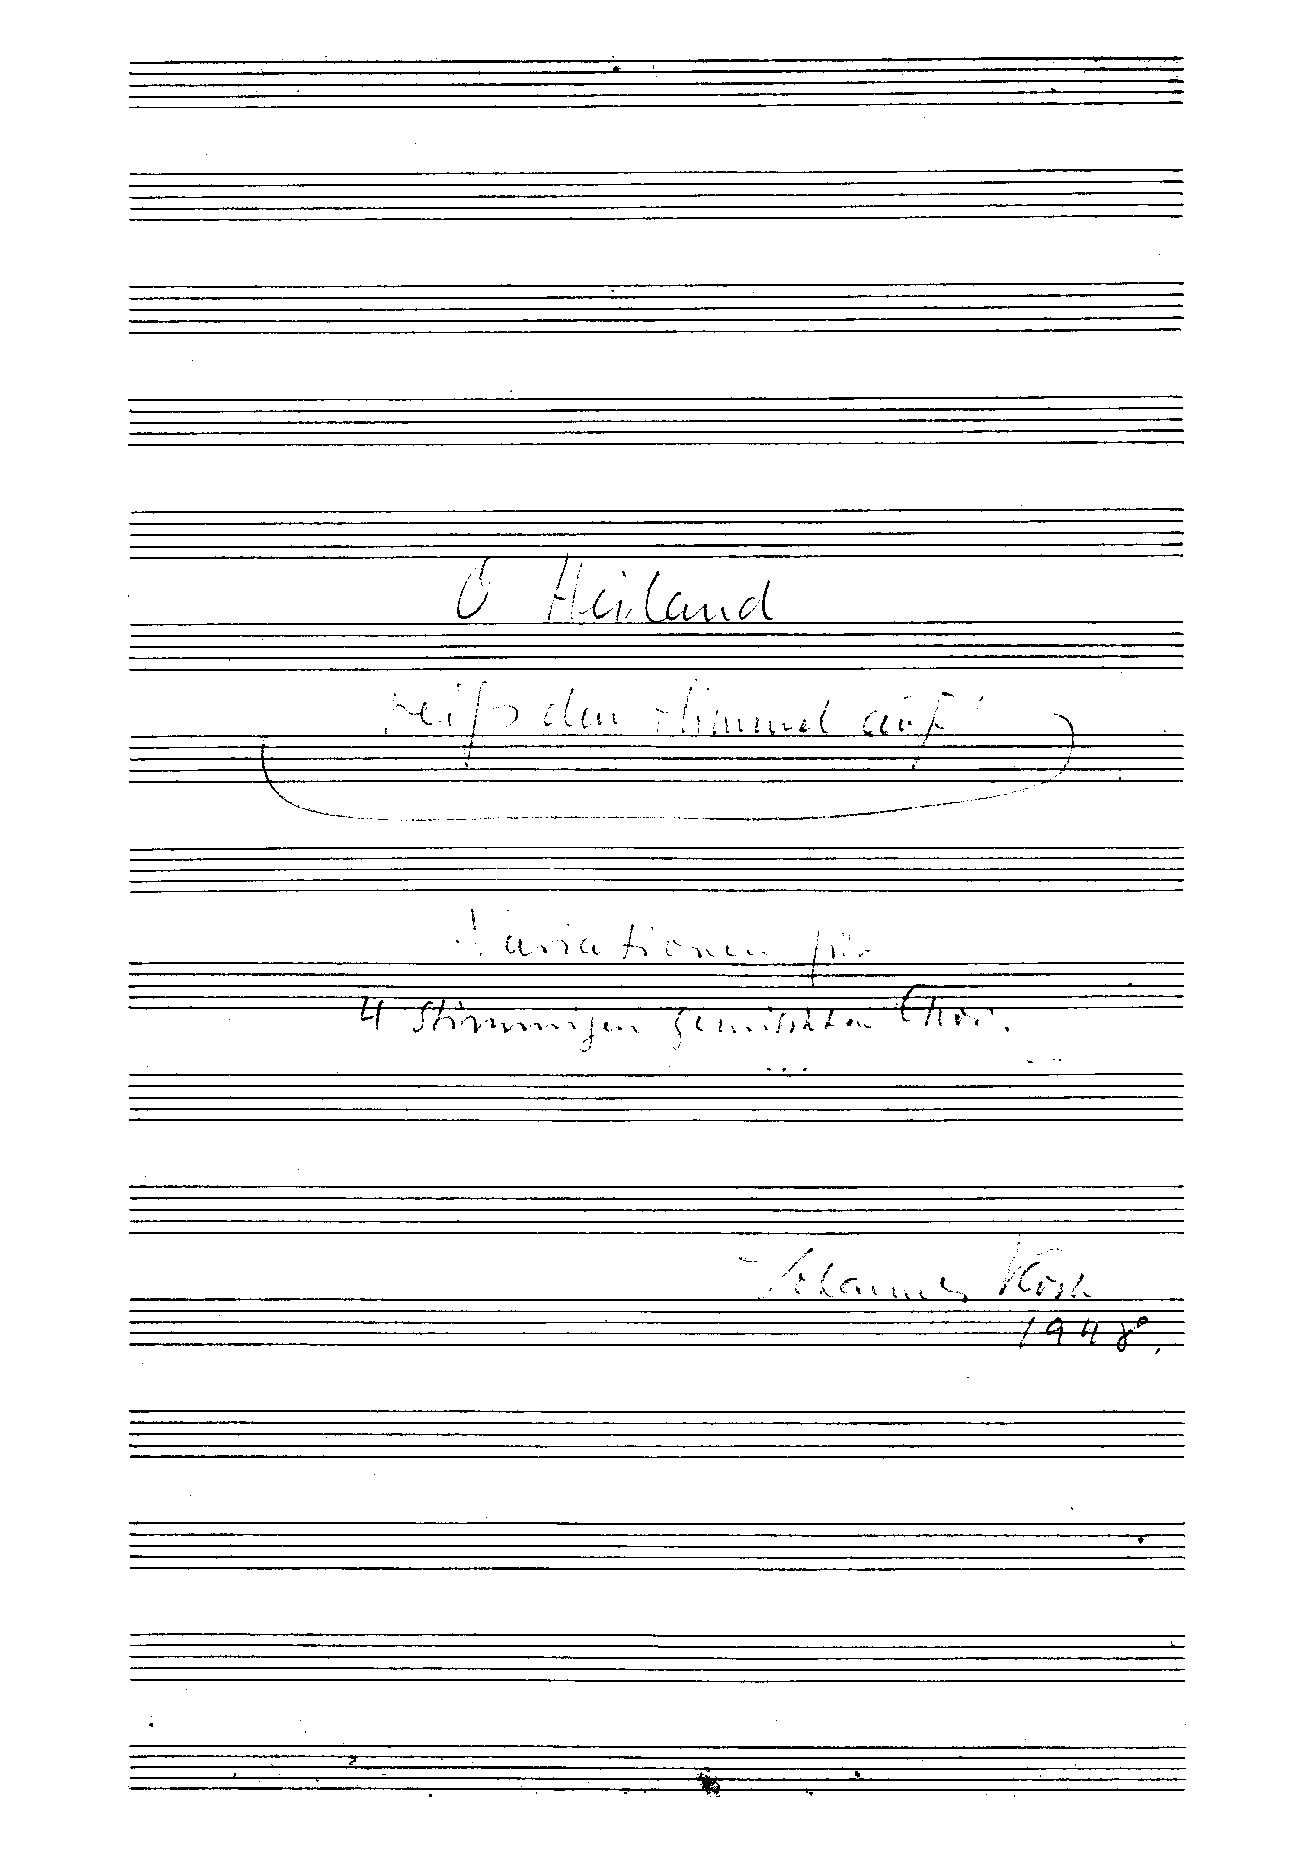 O Heiland
reiß den Himmel auf
Variationen für
4 stimmigen gemischten Chor.
Johannes Koch
1948.